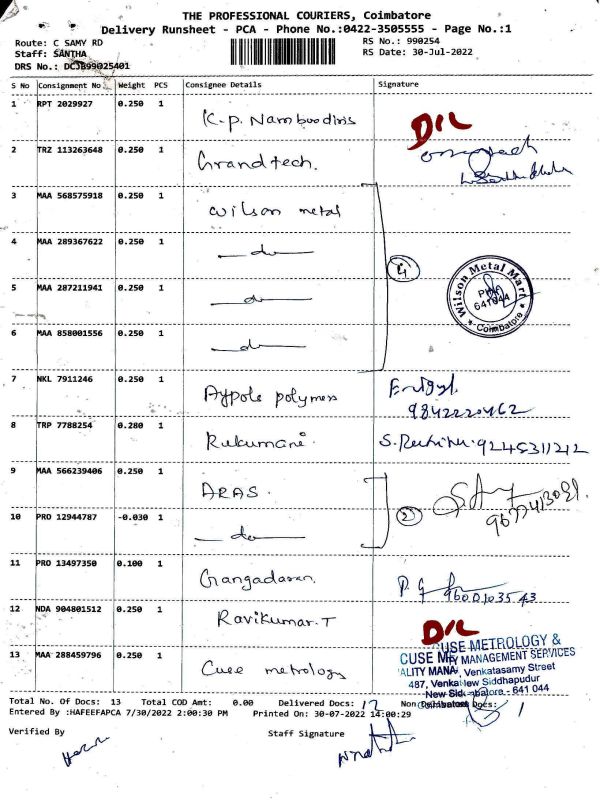 THE PROFESSIONAL COURIERS, Coimbatore
Delivery Runsheet - PCA - Phone No.:0422-3505555 - Page No.:1
Route: C SAMY RD
RS No.: 990254
Staff: SANTHA
RS Date: 30-Jul-2022
DRS No.: DCJB99025401
S No Consignment No Weight PCS Consignee Details Signature
1 RPT 2029927 0.250 1 K.P. Namboodiris
D/L
2 TRZ 113263648 0.250 1 Grandtech.
3 MAA 568575918 0.250 1 Wilson metal
4 MAA 289367622 0.250 1 — do —
4
5 MAA 287211941 0.250 1 — do —
Wilson Metal Mart
641044
* Coimbatore *
6 MAA 858001556 0.250 1 — do —
7 NKL 7911246 0.250 1 Aypole polymers
9842220462
8 TRP 7788254 0.280 1 Rukumani. 9245311212
9 MAA 566239406 0.250 1 ARAS.
2
10 PRO 12944787 -0.030 1 — do —
11 PRO 13497350 0.100 1 Gangadaran.
9600103543
12 NDA 904801512 0.250 1 Ravikumar.T
D/L
13 MAA 288459796 0.250 1 Cuse metrology
CUSE METROLOGY &
MANAGEMENT SERVICES
487, Venkatasamy Street
New Siddhapudur
641 044
Total No. Of Docs: 13 Total COD Amt: 0.00 Delivered Docs: 12 Non Delivered Docs: 1
Entered By :HAFEEFAPCA 7/30/2022 2:00:30 PM Printed On: 30-07-2022 14:00:29
Verified By Staff Signature